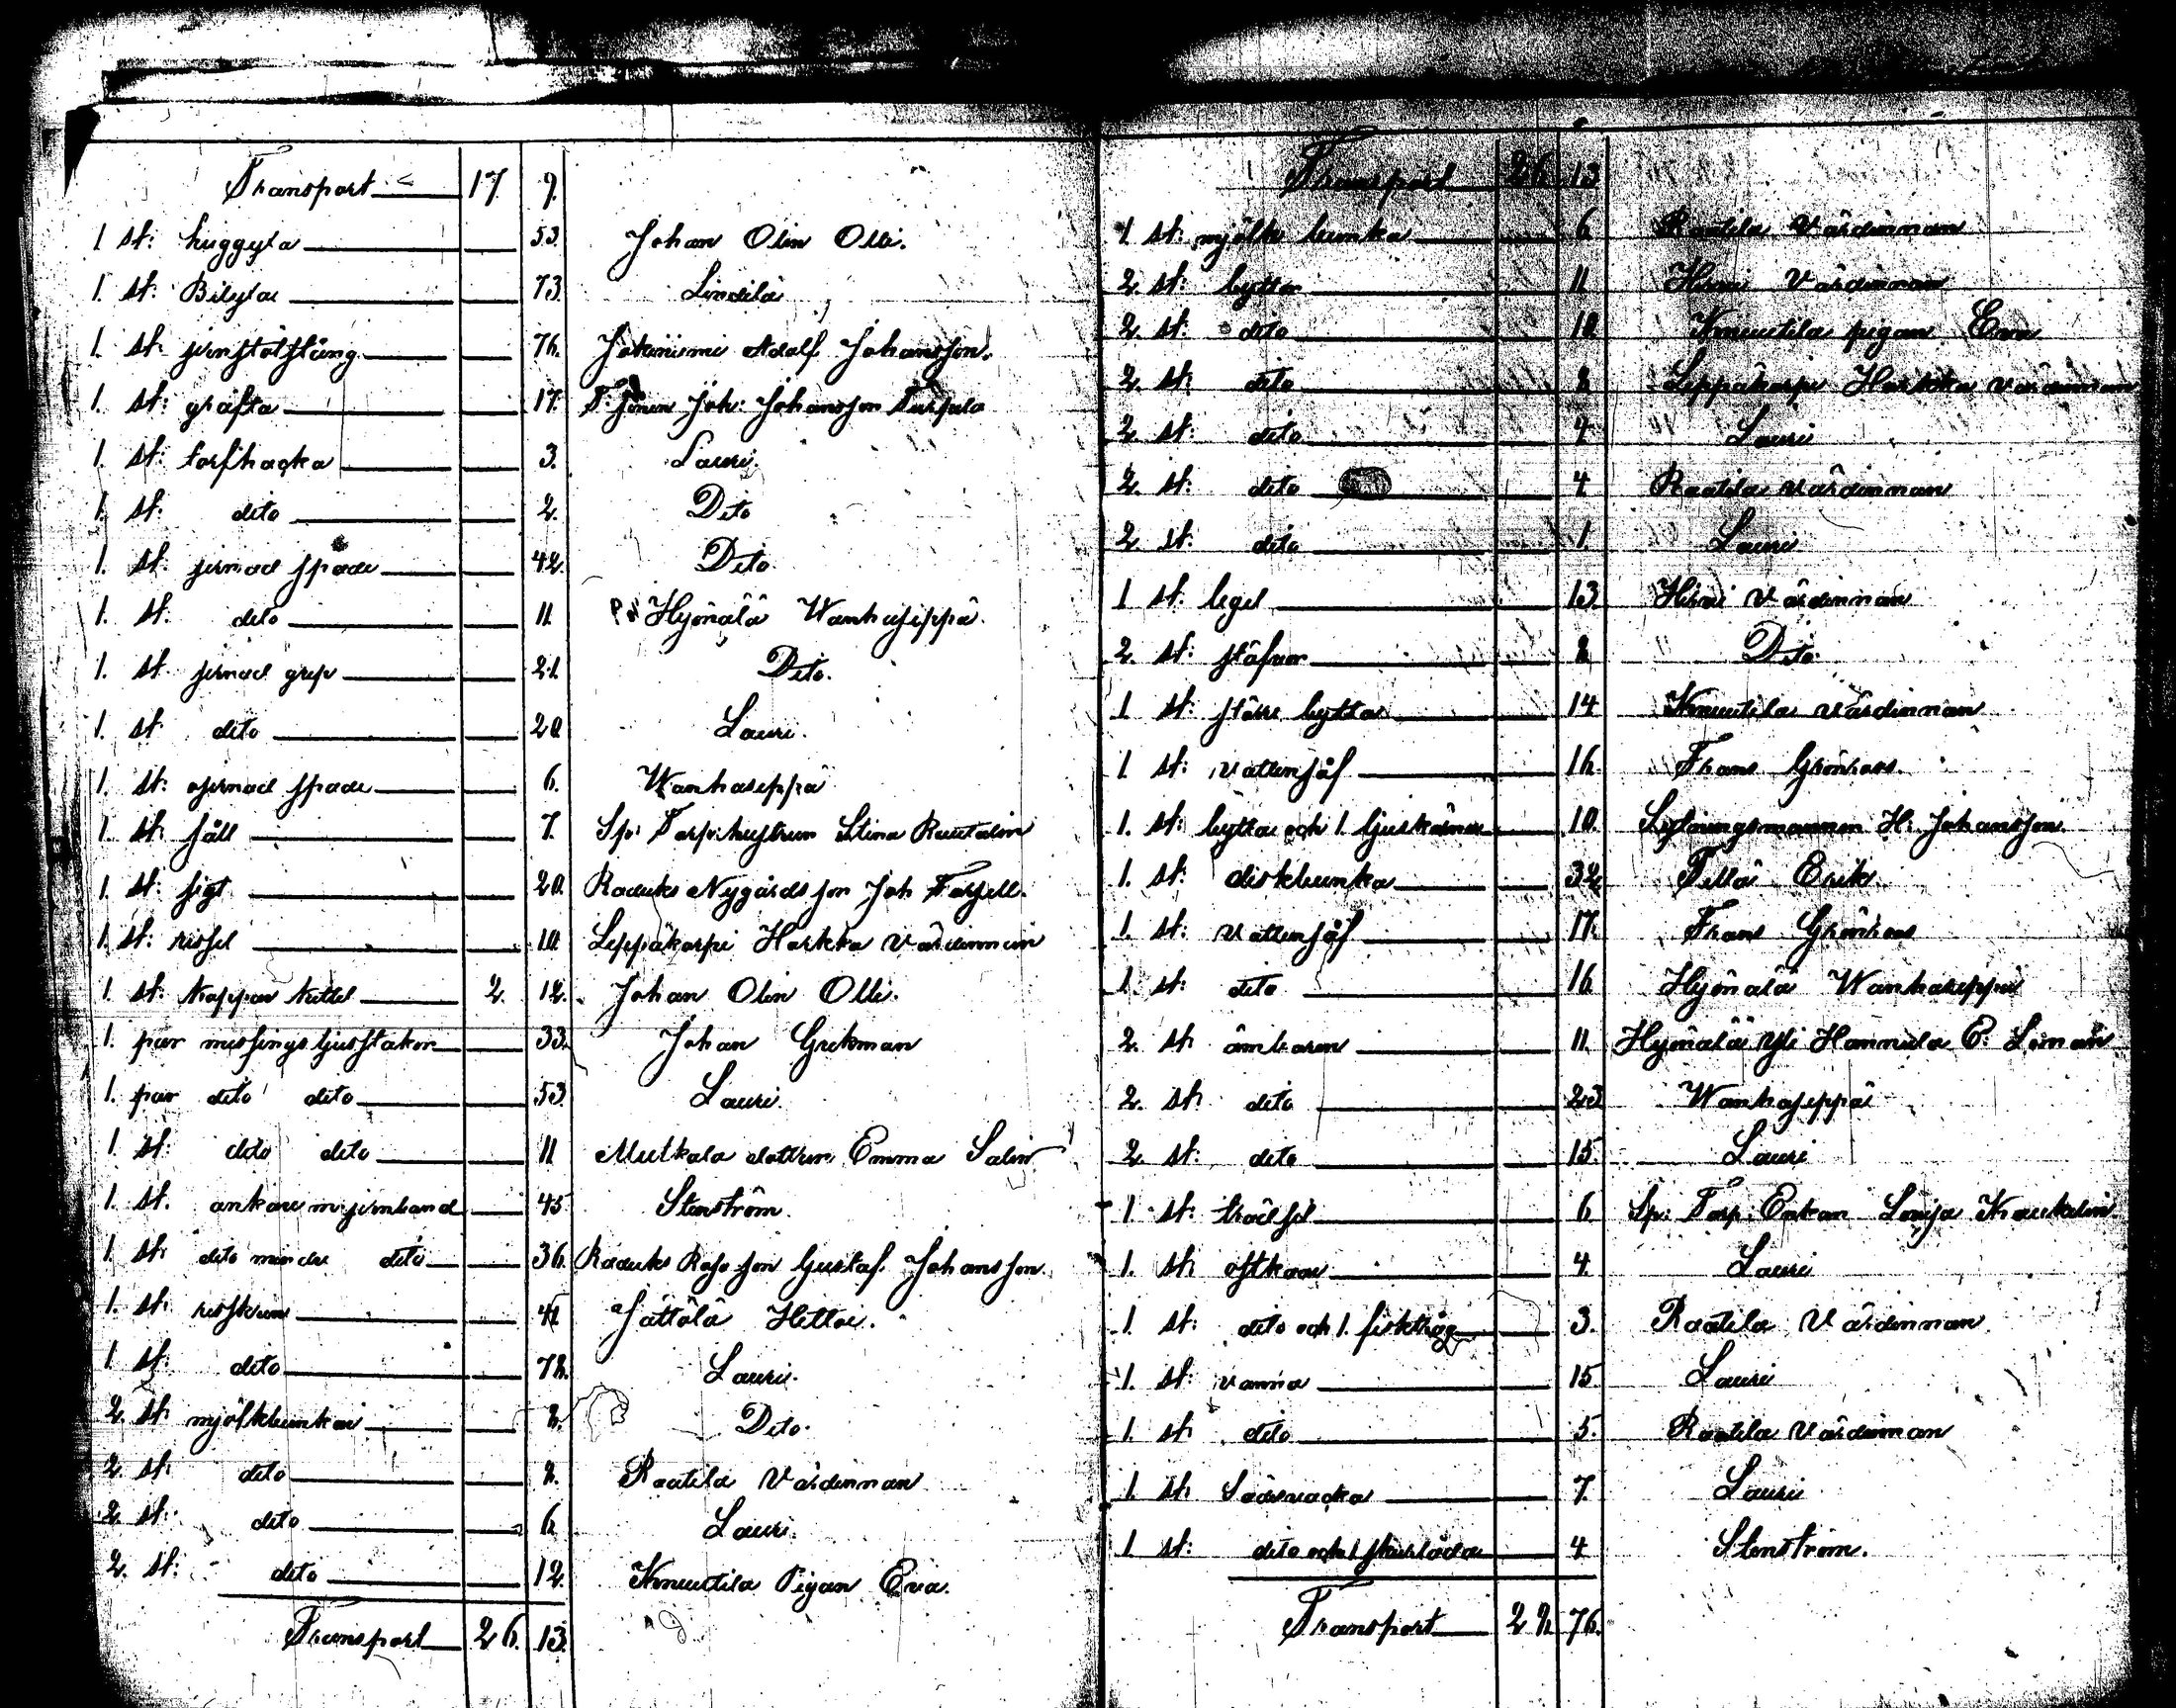 Transport 17. 9.
1 st: huggyxa 53. Johan Olin Olli.
1. st: Bilyxa 73. Lindila
1. st: jernstötstång 76. Jokiniemi Adolf Johansson.
1. st: gräfta 17. T. sonen Joh: Johansson
1. st: torfhacka 3. Lauri.
1. st: dito 2. Dito
1. st: jernad spade 42. Dito.
1. st: dito 11. Hyönälä Wanhaseppä.
1. st: jernad grep 21. Dito.
1. st: dito 20. Lauri.
1. st: ojernad spade 6. Wanhaseppä
1. st: såll 7. Sp: Torp:hustrun Stina Rautalin
1. st: sigt 20. Raduks Nygårds son Joh Farsell.
1. st: rissel 10. Leppäkorpi Harkka värdinnan
1. st: koppar kittel 2. 12. Johan Olin Olli.
1. par messings ljusstakar 33. Johan Grekman
1. par dito dito 53. Lauri.
1. st: dito dito 11 Mutkala dottren Emma Salin
1. st. ankare m. jernband 45 Stenström.
1. st: dito mindre dito 36. Raduks Rojo son Gustaf Johansson.
1. st: 41 Jättölä Heltoi.
1. st: dito 78. Lauri.
2. st: mjölkbunkar 8. Dito.
2. st: dito 8. Raatila Värdinnan
2. st: dito 6. Lauri.
2. st: dito 12. Knuutila Pigan Eva.
Transport 26. 13.
Transport 26 13
1. st: mjölk bunka 6 Raatila Värdinnan
2. st: byttor 11 Hirvi Värdinnan
2. st: dito 10 Knuutila pigan Eva
2. st: dito 8 Leppäkorpi Harkka värdinnan
2. st: dito 4 Lauri
2. st: dito 4 Raatila värdinnan
2. st: dito 1. Lauri
1 st: legel 13 Hirvi värdinnan
2. st: stäfvor 8 Dito.
1 st: större bytta 14 Knuutila värdinnan
1. st: vattensåf 16. Frans Grönroos.
1. st: bytta och 1. ljuskärna 10. Sytningsmannen H: Johansson.
1. st: diskbunka 32. Tillä Erik.
1. st: vattensåf 17. Frans Grönroos
1. st: dito 16 Hyönälä Wanhaseppä
2. st: ämbaren 11. Hyönälä Yli Hannula E: Liinan
2. st: dito 23 Wanhaseppä
2. st: dito 15. Lauri
1 st: 6 Sp: Torp: Enkan Lovisa Rautalin
1. st: ostkar 4. Lauri
1. st: dito och 1. fisktråg 3. Raatila Värdinnan.
1. st: vanna 15 Lauri
1. st: dito 5. Raatila värdinnan
1. st: 7. Lauri
1 st: dito och 1 4 Stenström.
Transport 28. 76.